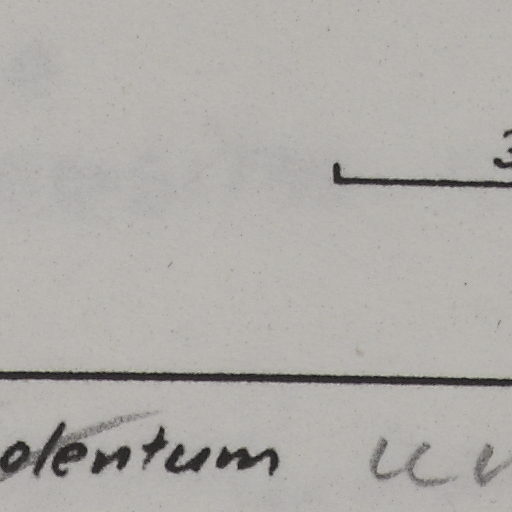 3
olentum